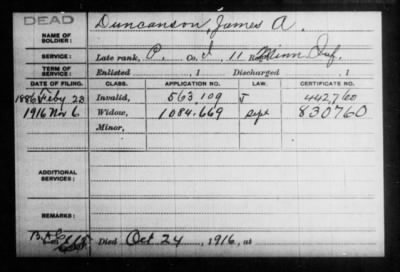 DEAD
NAME OF SOLDIER: Duncanson, James A.
SERVICE: Late rank, P. Co. I, 11 Reg't Minn Inf.
TERM OF SERVICE: Enlisted , 1 Discharged , 1
DATE OF FILING. CLASS. APPLICATION NO. LAW. CERTIFICATE NO.
1886 Feby 23 Invalid, 563.109 J 442760
1916 Nov 6 Widow, 1084.669 Sept 830760
Minor,
ADDITIONAL SERVICES:
REMARKS:
Died Oct 24, 1916, at